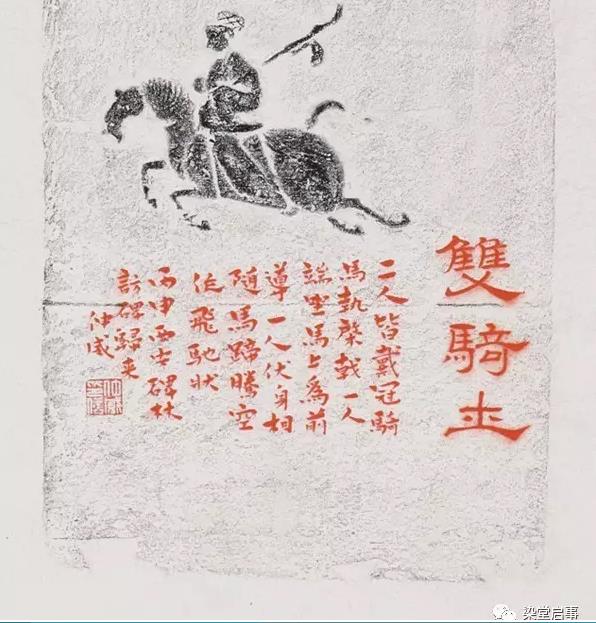 雙騎士
二人皆戴冠騎
馬執棨戟一人
端坐馬上爲前
導一人伏身相
隨馬蹄騰空
作飛馳状
丙申西安碑林
訪碑歸来
仲威
染堂启事